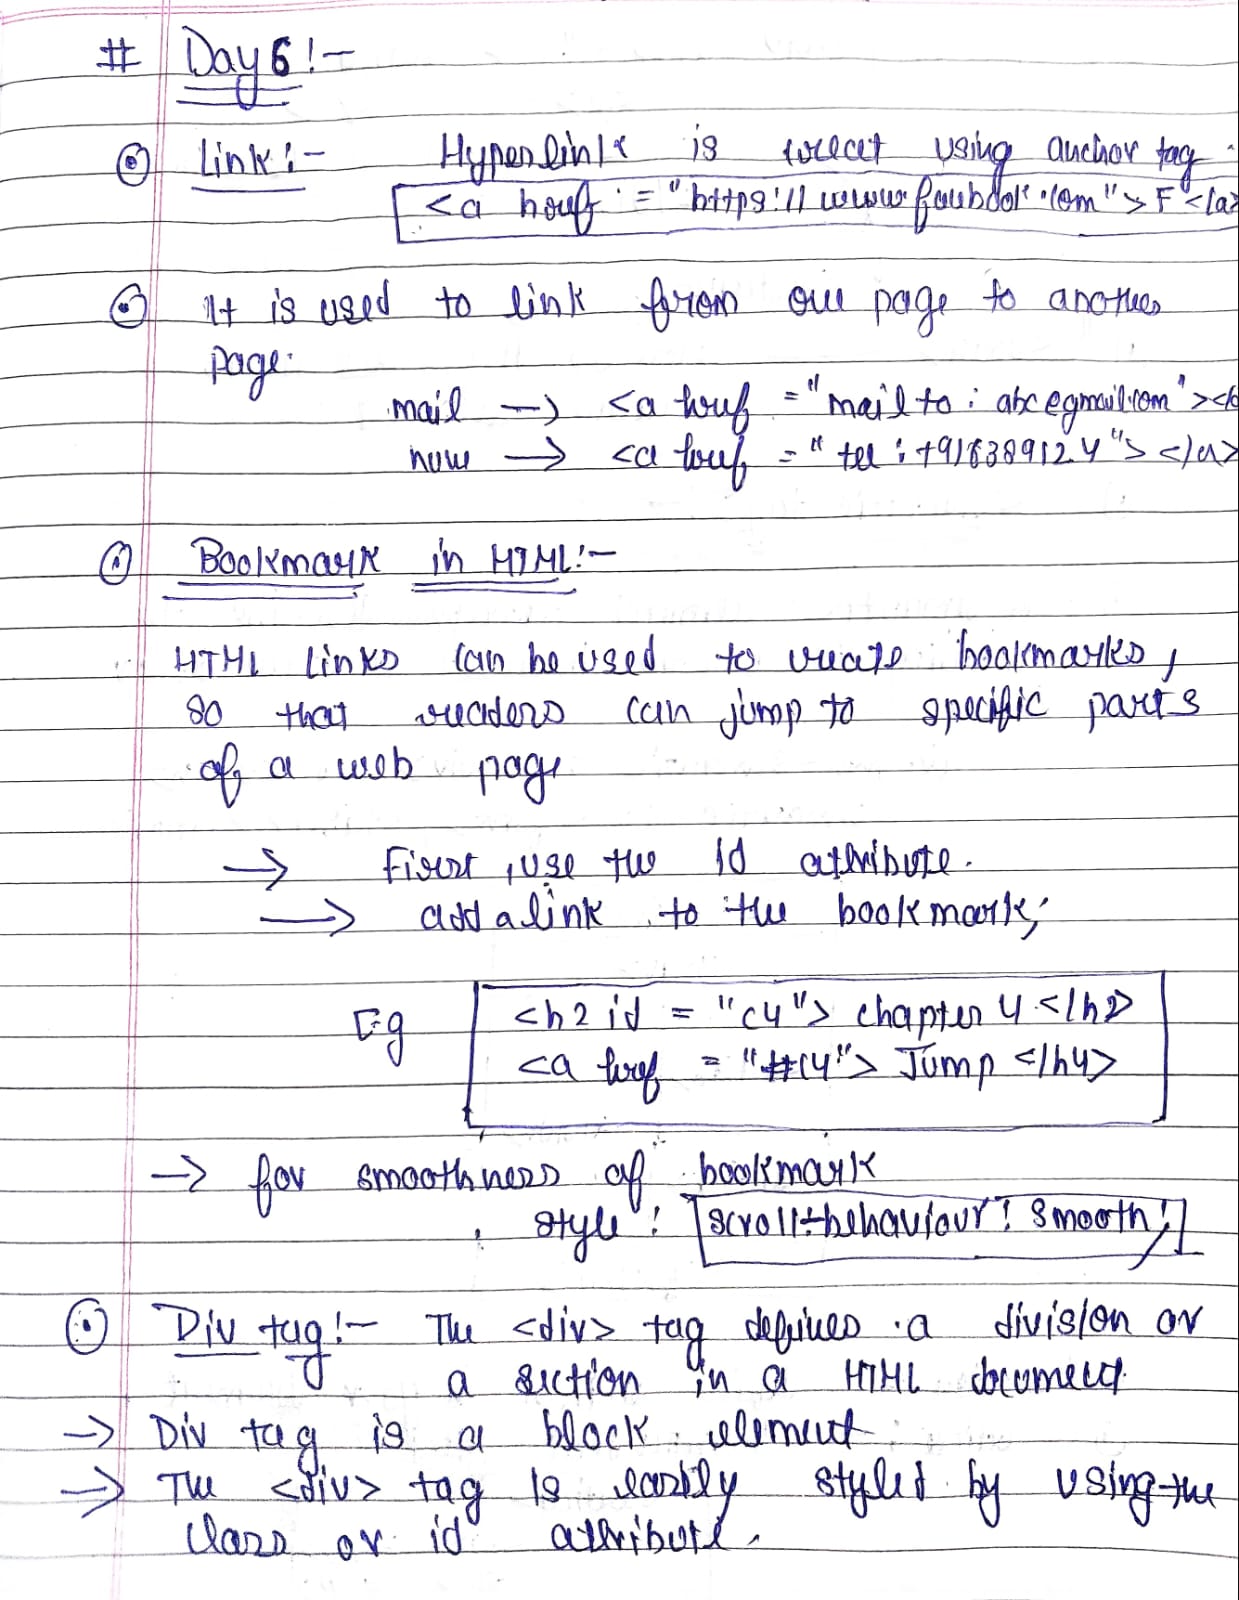 # Day 6 :-
Link :- Hyperlink is creat using anchor tag.
<a href = "https://www.facebook.com"> F </a>
It is used to link from one page to another
page.
mail → <a href = "mail to : abc@gmail.com"></a
num → <a href = "tel : +916389124"> </a>
Bookmark in HTML :-
HTML links can be used to create bookmarks,
so that readers can jump to specific parts
of a web page
→ First, use the id attribute.
→ add a link to the bookmark;
Eg <h2 id = "c4"> chapter 4 </h2>
<a href = "#c4"> Jump </h4>
→ for smoothness of bookmark
style : scroll-behaviour : smooth;
Div tag :- The <div> tag defines a division or
a section in a HTML document.
→ Div tag is a block element.
→ The <div> tag is easily styled by using the
class or id attribute.